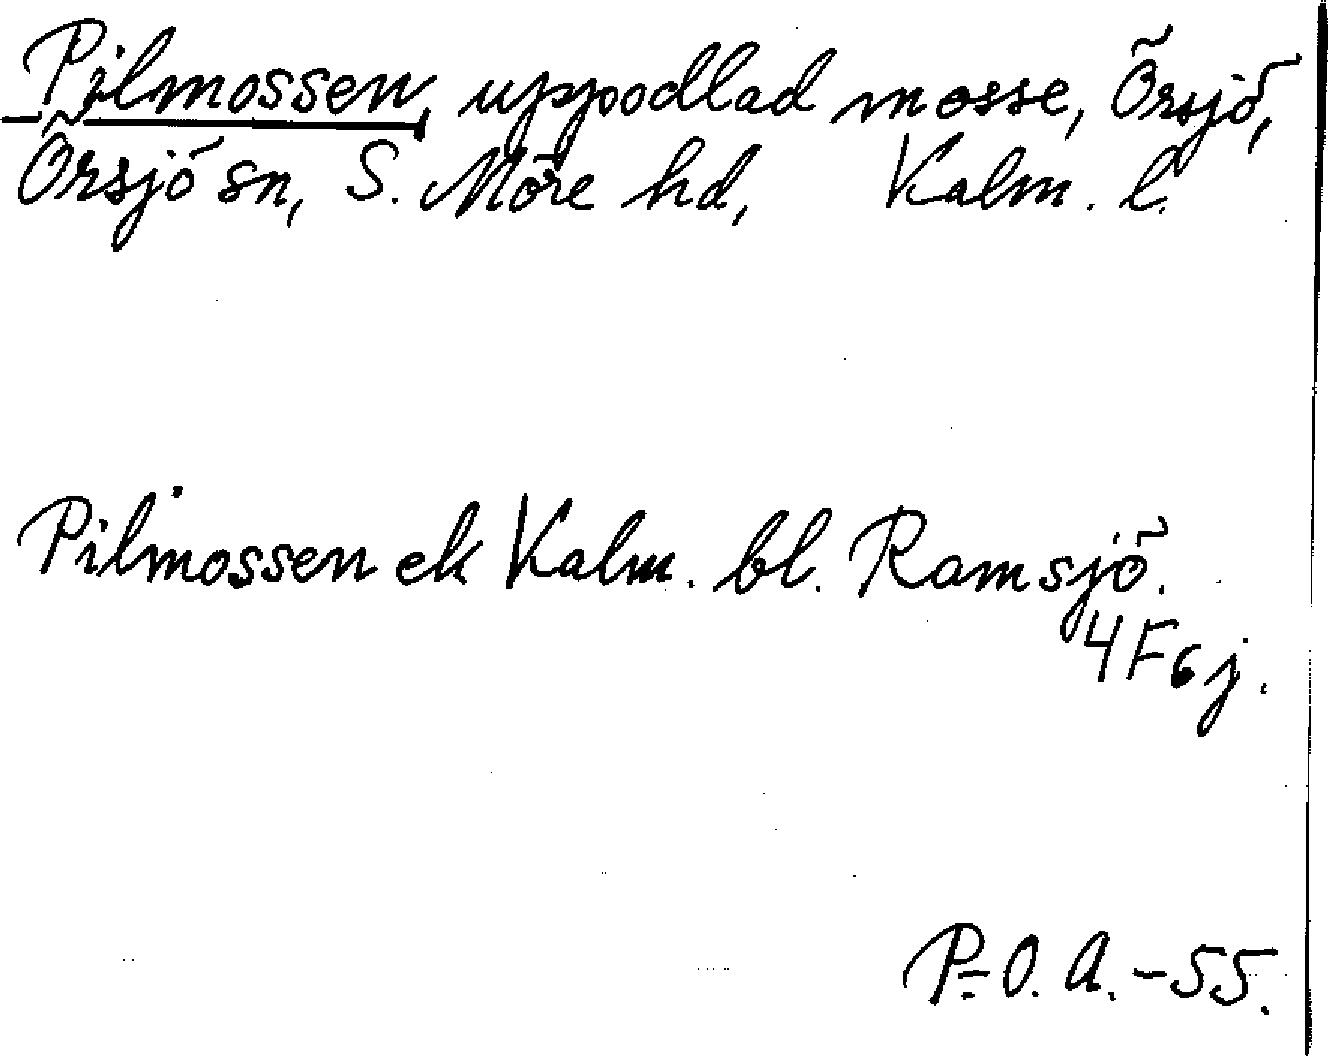 Pilmossen, uppodlad mosse, Örsjö,
Örsjö sn, S. Möre hd, Kalm. l.
Pilmossen ek Kalm. bl. Ramsjö.
4F6j.
P-O. A. -55.